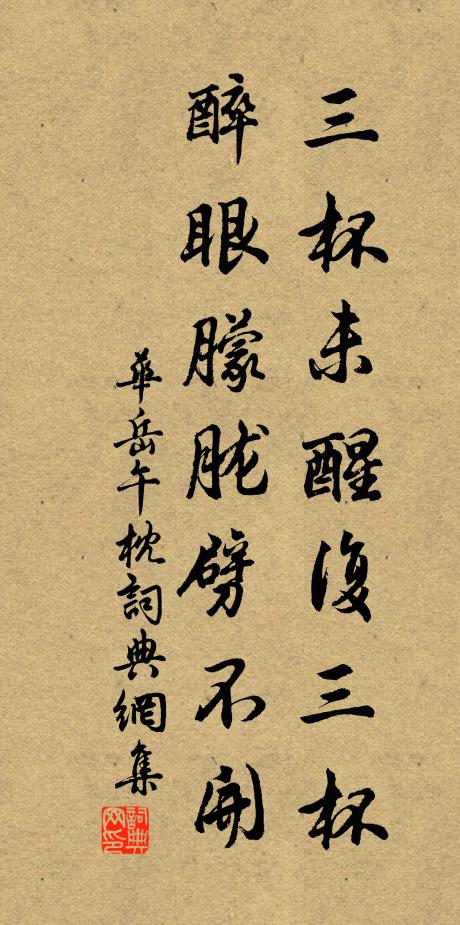 三杯未醒復三杯
醉眼朦胧劈不開
華岳午枕詞典網集
詞典网印